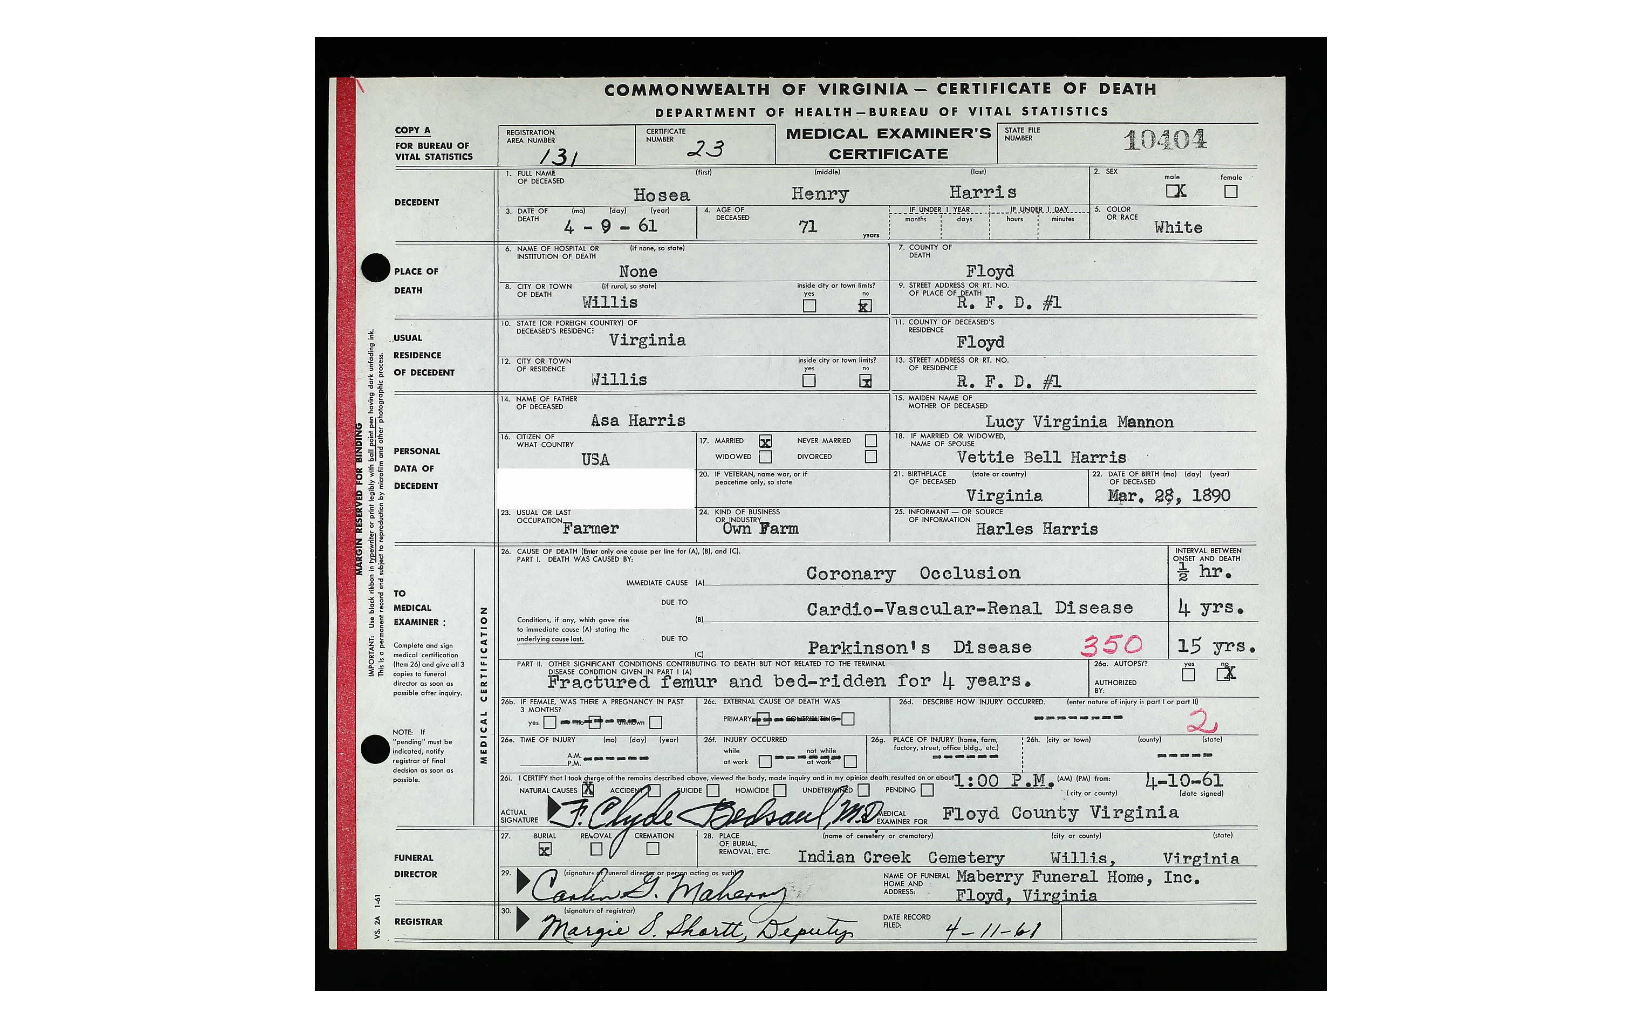 COMMONWEALTH OF VIRGINIA — CERTIFICATE OF DEATH
DEPARTMENT OF HEALTH—BUREAU OF VITAL STATISTICS
COPY A
FOR BUREAU OF
VITAL STATISTICS
REGISTRATION AREA NUMBER 131
CERTIFICATE NUMBER 23
MEDICAL EXAMINER'S
CERTIFICATE
STATE FILE NUMBER 10404
DECEDENT
1. FULL NAME OF DECEASED (first) (middle) (last)
Hosea Henry Harris
2. SEX male X female
3. DATE OF DEATH (mo) (day) (year)
4 - 9 - 61
4. AGE OF DECEASED 71 years
IF UNDER 1 YEAR months days
IF UNDER 1 DAY hours minutes
5. COLOR OR RACE White
PLACE OF
DEATH
6. NAME OF HOSPITAL OR INSTITUTION OF DEATH (if none, so state)
None
7. COUNTY OF DEATH
Floyd
8. CITY OR TOWN OF DEATH (if rural, so state)
Willis
inside city or town limits? yes no x
9. STREET ADDRESS OR RT. NO. OF PLACE OF DEATH
R. F. D. #1
USUAL
RESIDENCE
OF DECEDENT
10. STATE (OR FOREIGN COUNTRY) OF DECEASED'S RESIDENCE
Virginia
11. COUNTY OF DECEASED'S RESIDENCE
Floyd
12. CITY OR TOWN OF RESIDENCE
Willis
inside city or town limits? yes no x
13. STREET ADDRESS OR RT. NO. OF RESIDENCE
R. F. D. #1
PERSONAL
DATA OF
DECEDENT
14. NAME OF FATHER OF DECEASED
Asa Harris
15. MAIDEN NAME OF MOTHER OF DECEASED
Lucy Virginia Mannon
16. CITIZEN OF WHAT COUNTRY
USA
17. MARRIED x NEVER MARRIED
WIDOWED DIVORCED
18. IF MARRIED OR WIDOWED, NAME OF SPOUSE
Vettie Bell Harris
20. IF VETERAN, name war, or if peacetime only, so state
21. BIRTHPLACE OF DECEASED (state or country)
Virginia
22. DATE OF BIRTH OF DECEASED (mo) (day) (year)
Mar. 28, 1890
23. USUAL OR LAST OCCUPATION Farmer
24. KIND OF BUSINESS OR INDUSTRY Own Farm
25. INFORMANT — OR SOURCE OF INFORMATION Harles Harris
TO
MEDICAL
EXAMINER :
Complete and sign
medical certification
(Item 26) and give all 3
copies to funeral
director as soon as
possible after inquiry.
NOTE: If
"pending" must be
indicated, notify
registrar of final
decision as soon as
possible.
MEDICAL CERTIFICATION
26. CAUSE OF DEATH (Enter only one cause per line for (A), (B), and (C).
PART I. DEATH WAS CAUSED BY:
INTERVAL BETWEEN ONSET AND DEATH
IMMEDIATE CAUSE (A) Coronary Occlusion ½ hr.
Conditions, if any, which gave rise
to immediate cause (A) stating the
underlying cause last.
DUE TO (B) Cardio-Vascular-Renal Disease 4 yrs.
DUE TO (C) Parkinson's Disease 350 15 yrs.
PART II. OTHER SIGNIFICANT CONDITIONS CONTRIBUTING TO DEATH BUT NOT RELATED TO THE TERMINAL
DISEASE CONDITION GIVEN IN PART I (A)
Fractured femur and bed-ridden for 4 years.
26a. AUTOPSY? yes no X
AUTHORIZED BY:
26b. IF FEMALE, WAS THERE A PREGNANCY IN PAST 3 MONTHS?
yes no unknown
26c. EXTERNAL CAUSE OF DEATH WAS
PRIMARY CONTRIBUTING
26d. DESCRIBE HOW INJURY OCCURRED. (enter nature of injury in part I or part II)
-------
2
26e. TIME OF INJURY (mo) (day) (year)
A.M.
P.M. ------
26f. INJURY OCCURRED
while at work not while at work
26g. PLACE OF INJURY (home, farm, factory, street, office bldg., etc.)
------
26h. (city or town) (county) (state)
----
26i. I CERTIFY that I took charge of the remains described above, viewed the body, made inquiry and in my opinion death resulted on or about 1:00 P.M. (AM) (PM) from: 4-10-61
NATURAL CAUSES X ACCIDENT SUICIDE HOMICIDE UNDETERMINED PENDING (city or county) (date signed)
ACTUAL SIGNATURE F. Clyde Bedsaul, M.D. MEDICAL EXAMINER FOR Floyd County Virginia
FUNERAL
DIRECTOR
27. BURIAL x REMOVAL CREMATION
28. PLACE OF BURIAL, REMOVAL, ETC. (name of cemetery or crematory) (city or county) (state)
Indian Creek Cemetery Willis, Virginia
29. (signature of funeral director or person acting as such)
NAME OF FUNERAL HOME AND ADDRESS: Maberry Funeral Home, Inc.
Floyd, Virginia
REGISTRAR
30. (signature of registrar)
Margie S. Shortt, Deputy
DATE RECORD FILED: 4-11-61
MARGIN RESERVED FOR BINDING
IMPORTANT: Use black ribbon in typewriter or print legibly with ball point pen having dark unfading ink.
This is a permanent record and subject to reproduction by microfilm and other photographic process.
VS. 2A 1-61